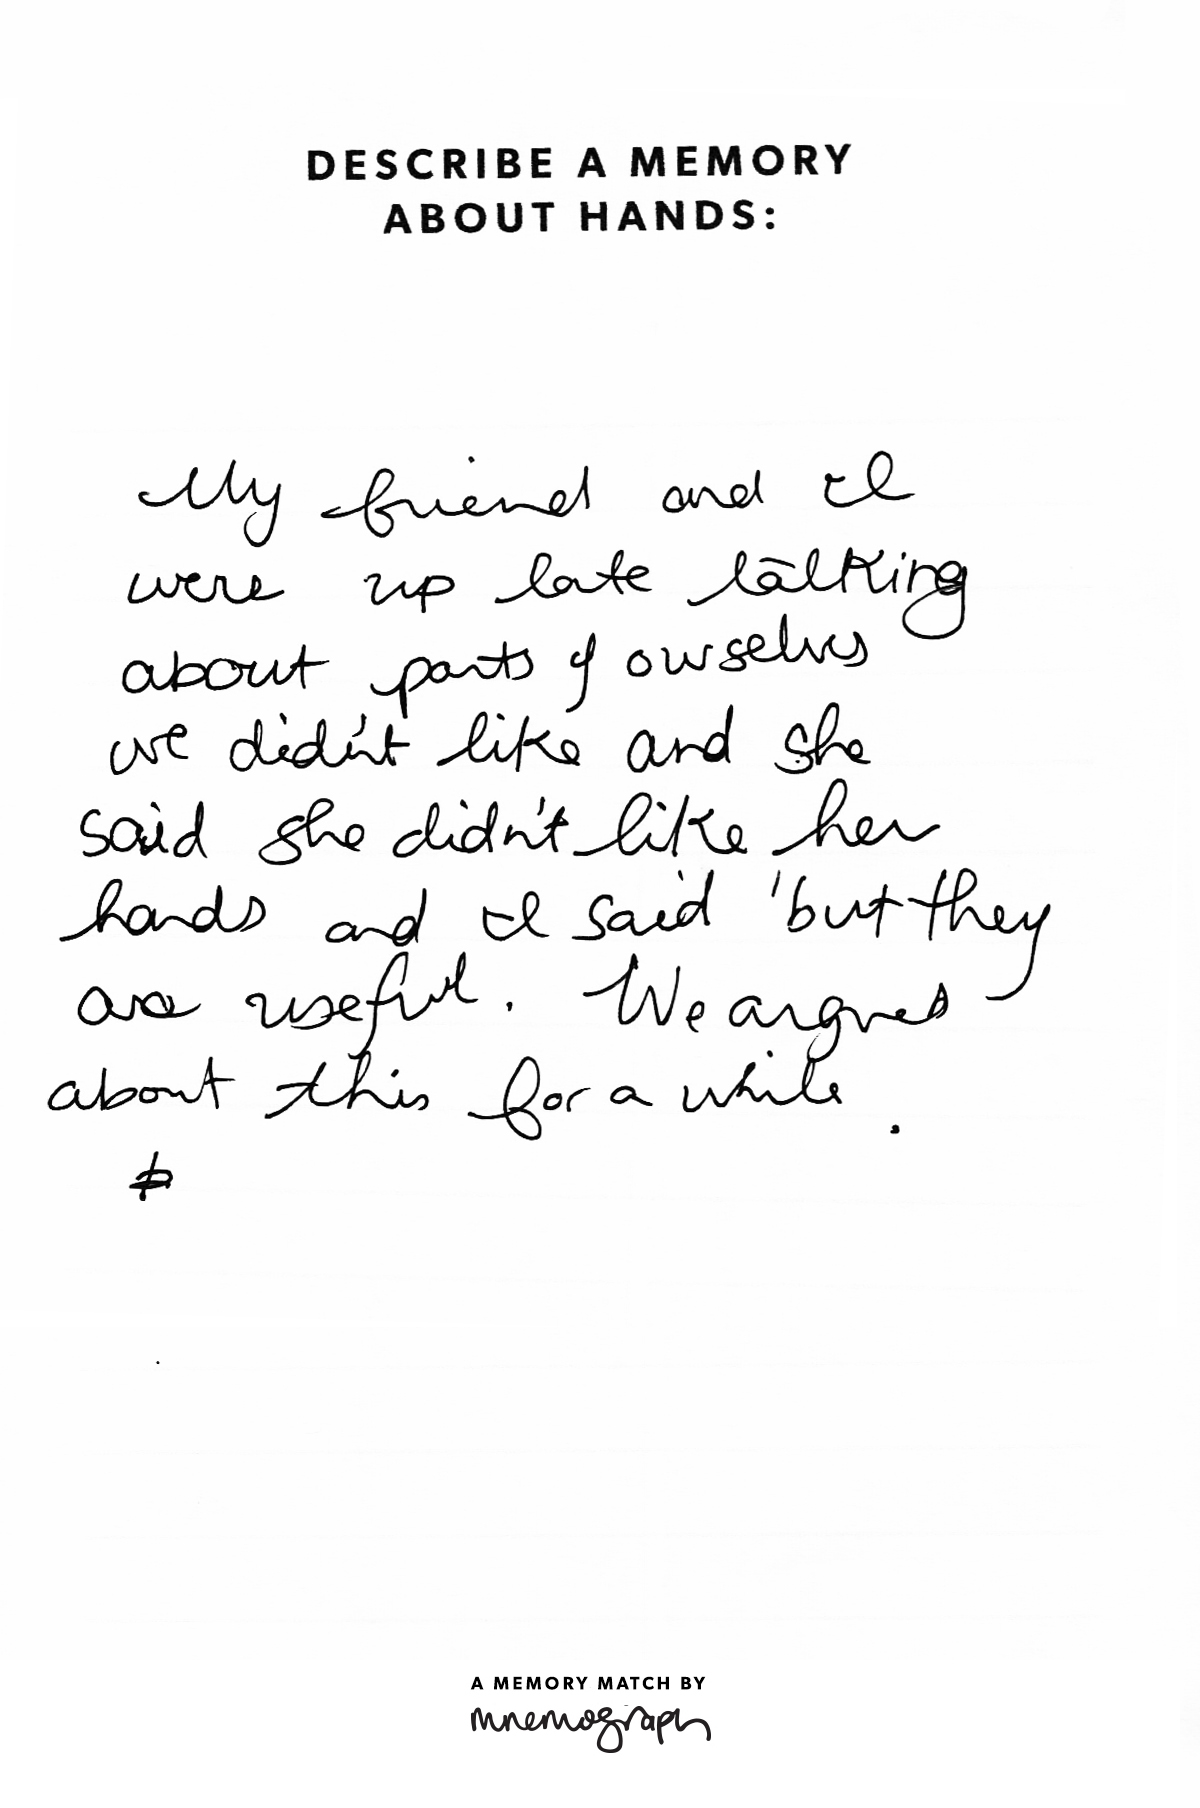 DESCRIBE A MEMORY
ABOUT HANDS:
My friend and I
were up late talking
about parts of ourselves
we didn't like and she
said she didn't like her
hands and I said 'but they
are useful. We argued
about this for a while.
A MEMORY MATCH BY
mnemograph